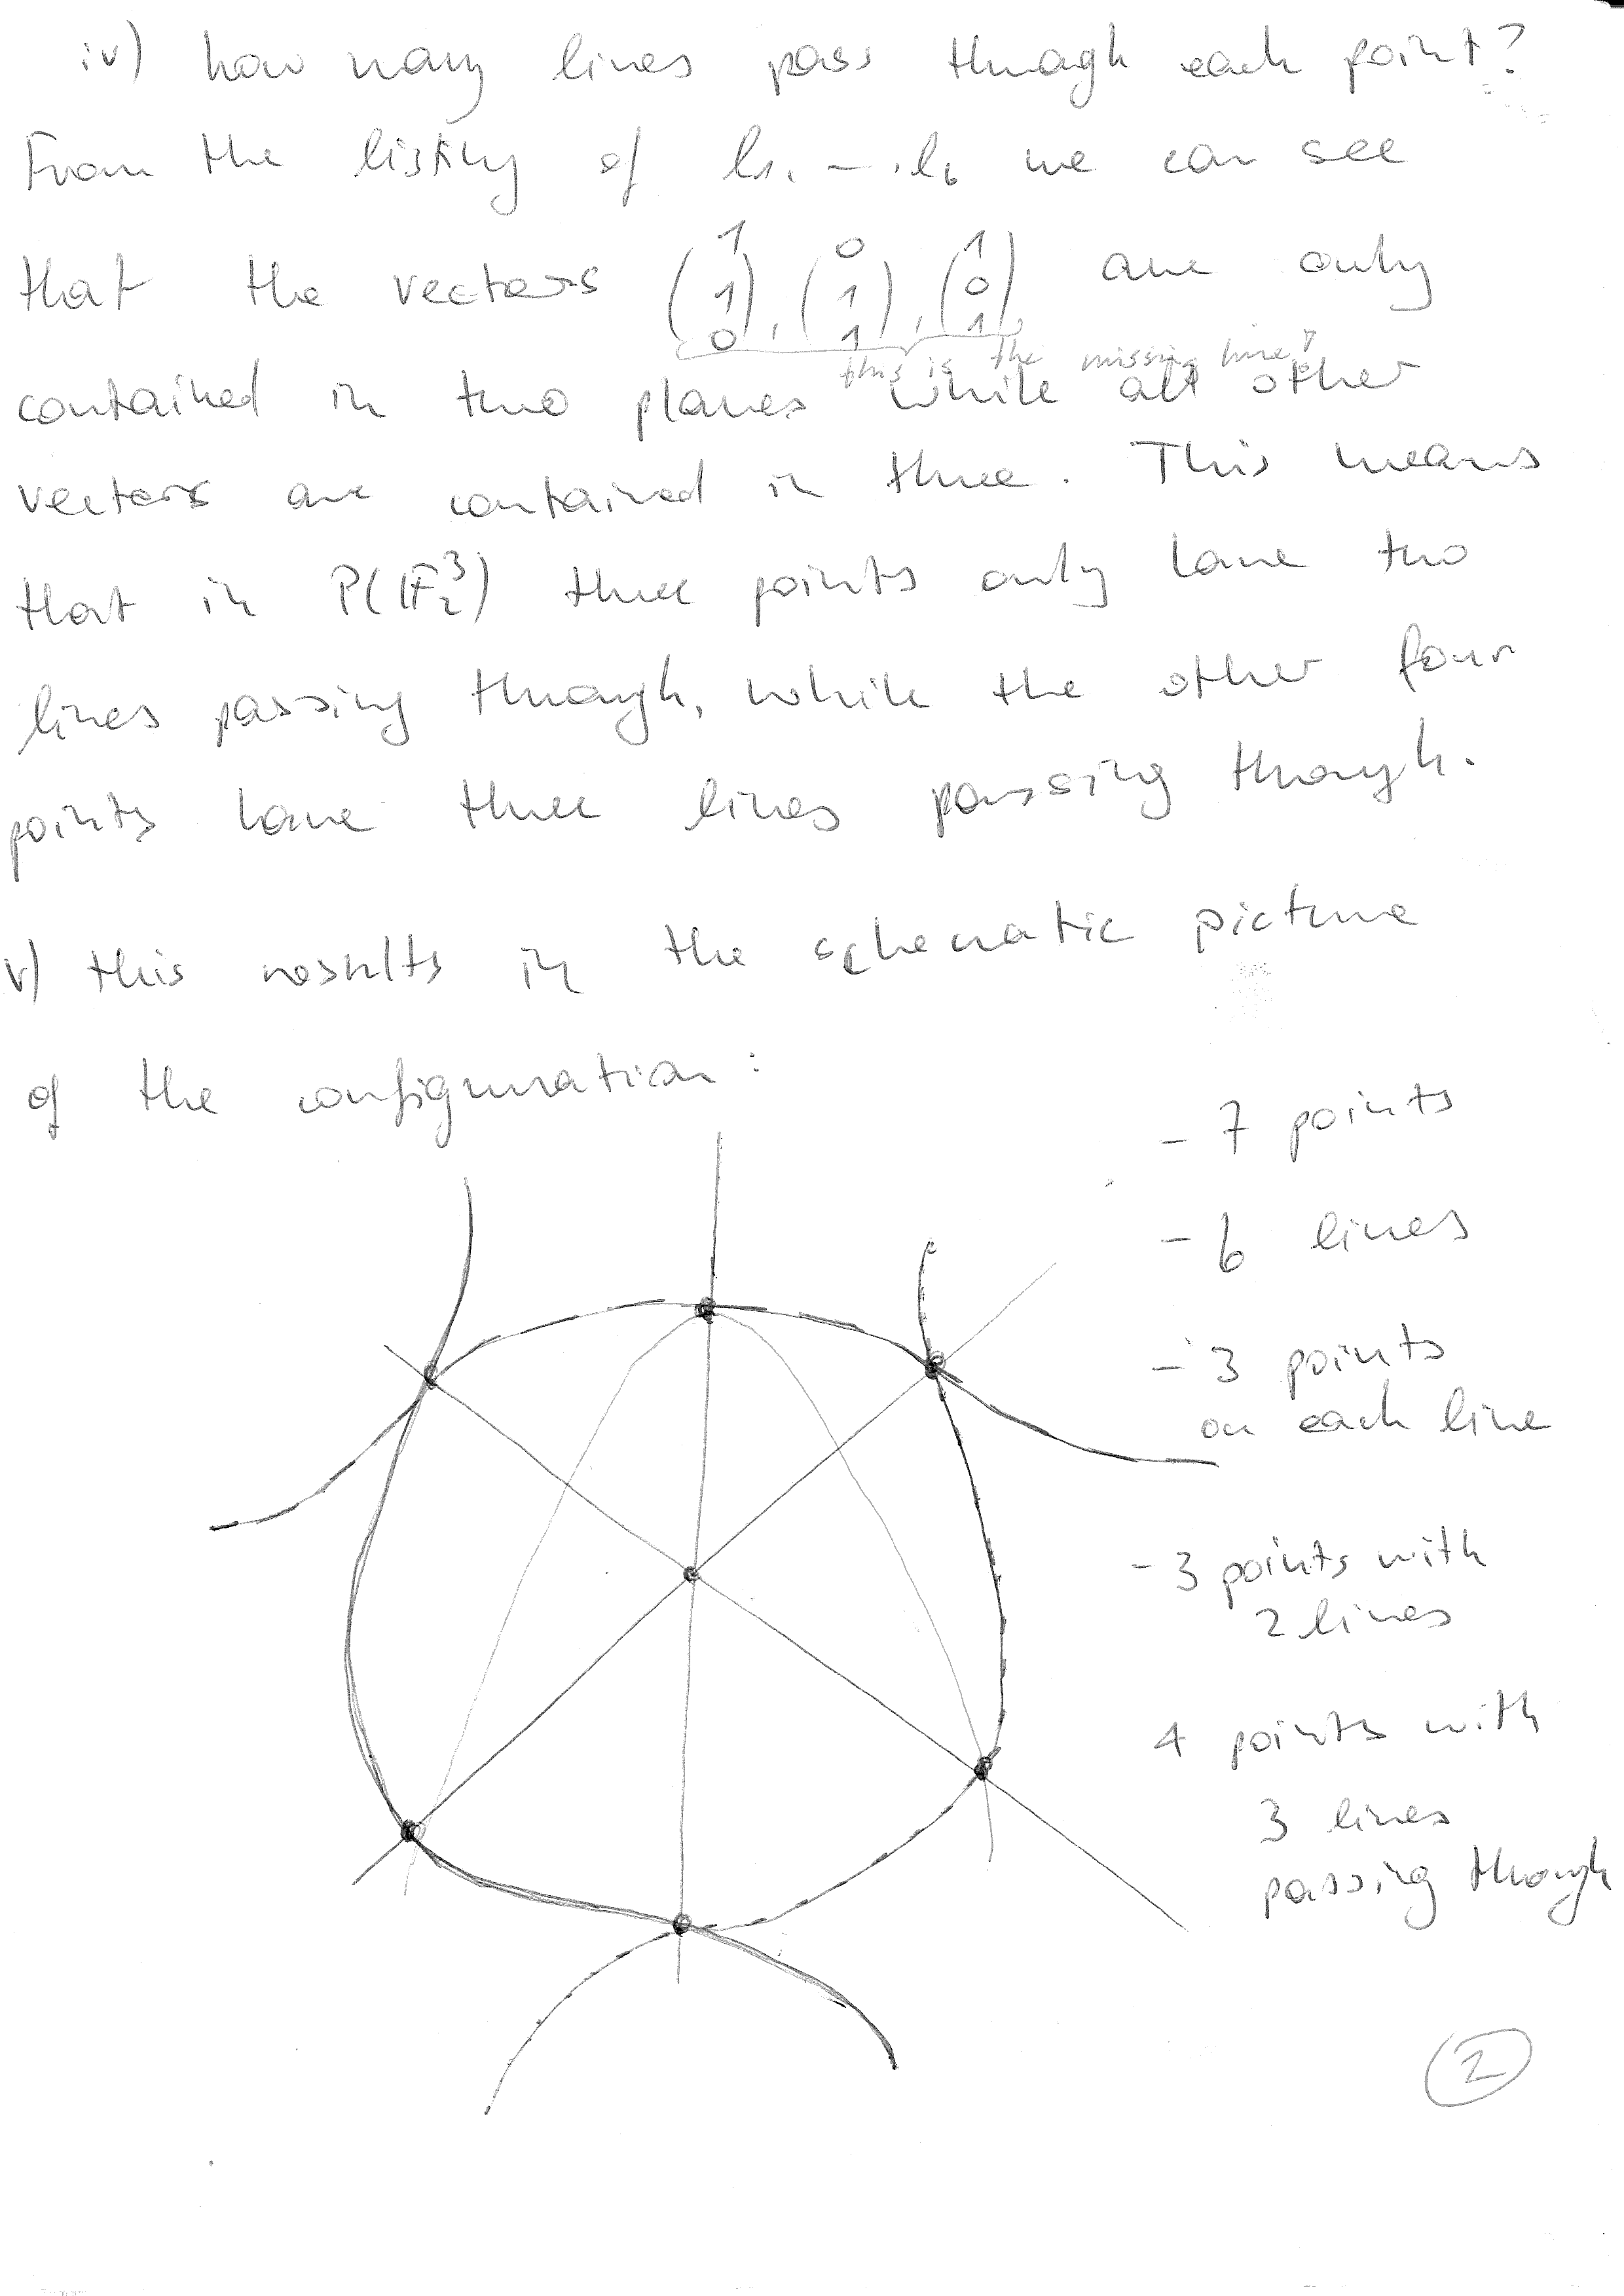 iv) how many lines pass through each point?
From the listing of l₁, ‒ , l₆ we can see
that the vectors (1 1 0), (0 1 1), (1 0 1) are only
this is the missing line!
contained in two planes while all other
vectors are contained in three. This means
that in P(𝔽₂³) three points only have two
lines passing through, while the other four
points have three lines passing through.
v) this results in the schematic picture
of the configuration:
- 7 points
- 6 lines
- 3 points
on each line
- 3 points with
2 lines
4 points with
3 lines
passing through
2